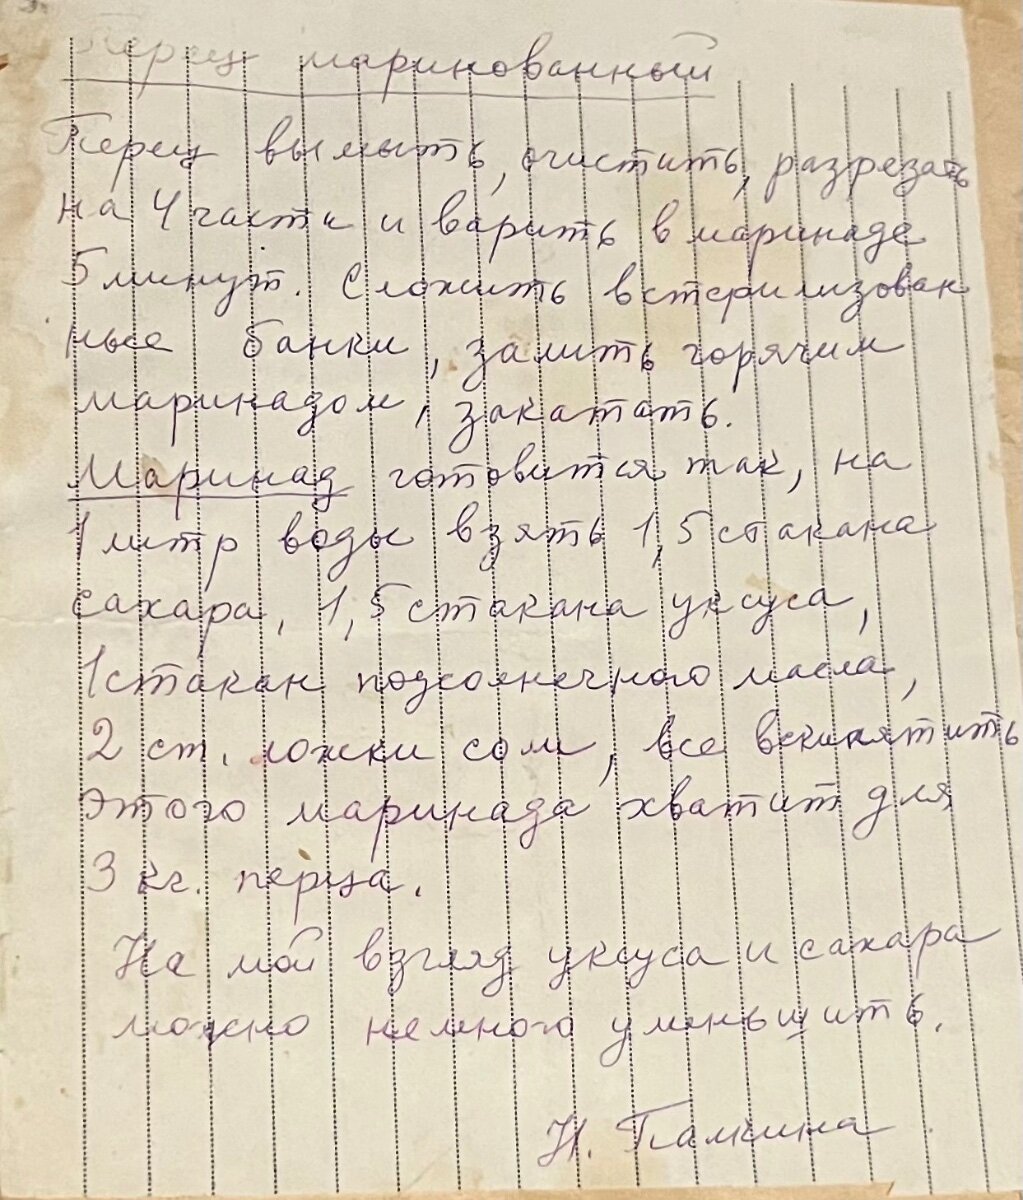 Перец маринованный
Перец вымыть, очистить, разрезать
на 4 части и варить в маринаде
5 минут. Сложить в стерилизован
ные банки, залить горячим
маринадом, закатать.
Маринад готовится так, на
1 литр воды взять 1,5 стакана
сахара, 1,5 стакана уксуса,
1 стакан подсолнечного масла,
2 ст. ложки соли, все вскипятить
Этого маринада хватит для
3 кг. перца.
На мой взгляд уксуса и сахара
можно немного уменьшить.
Н.